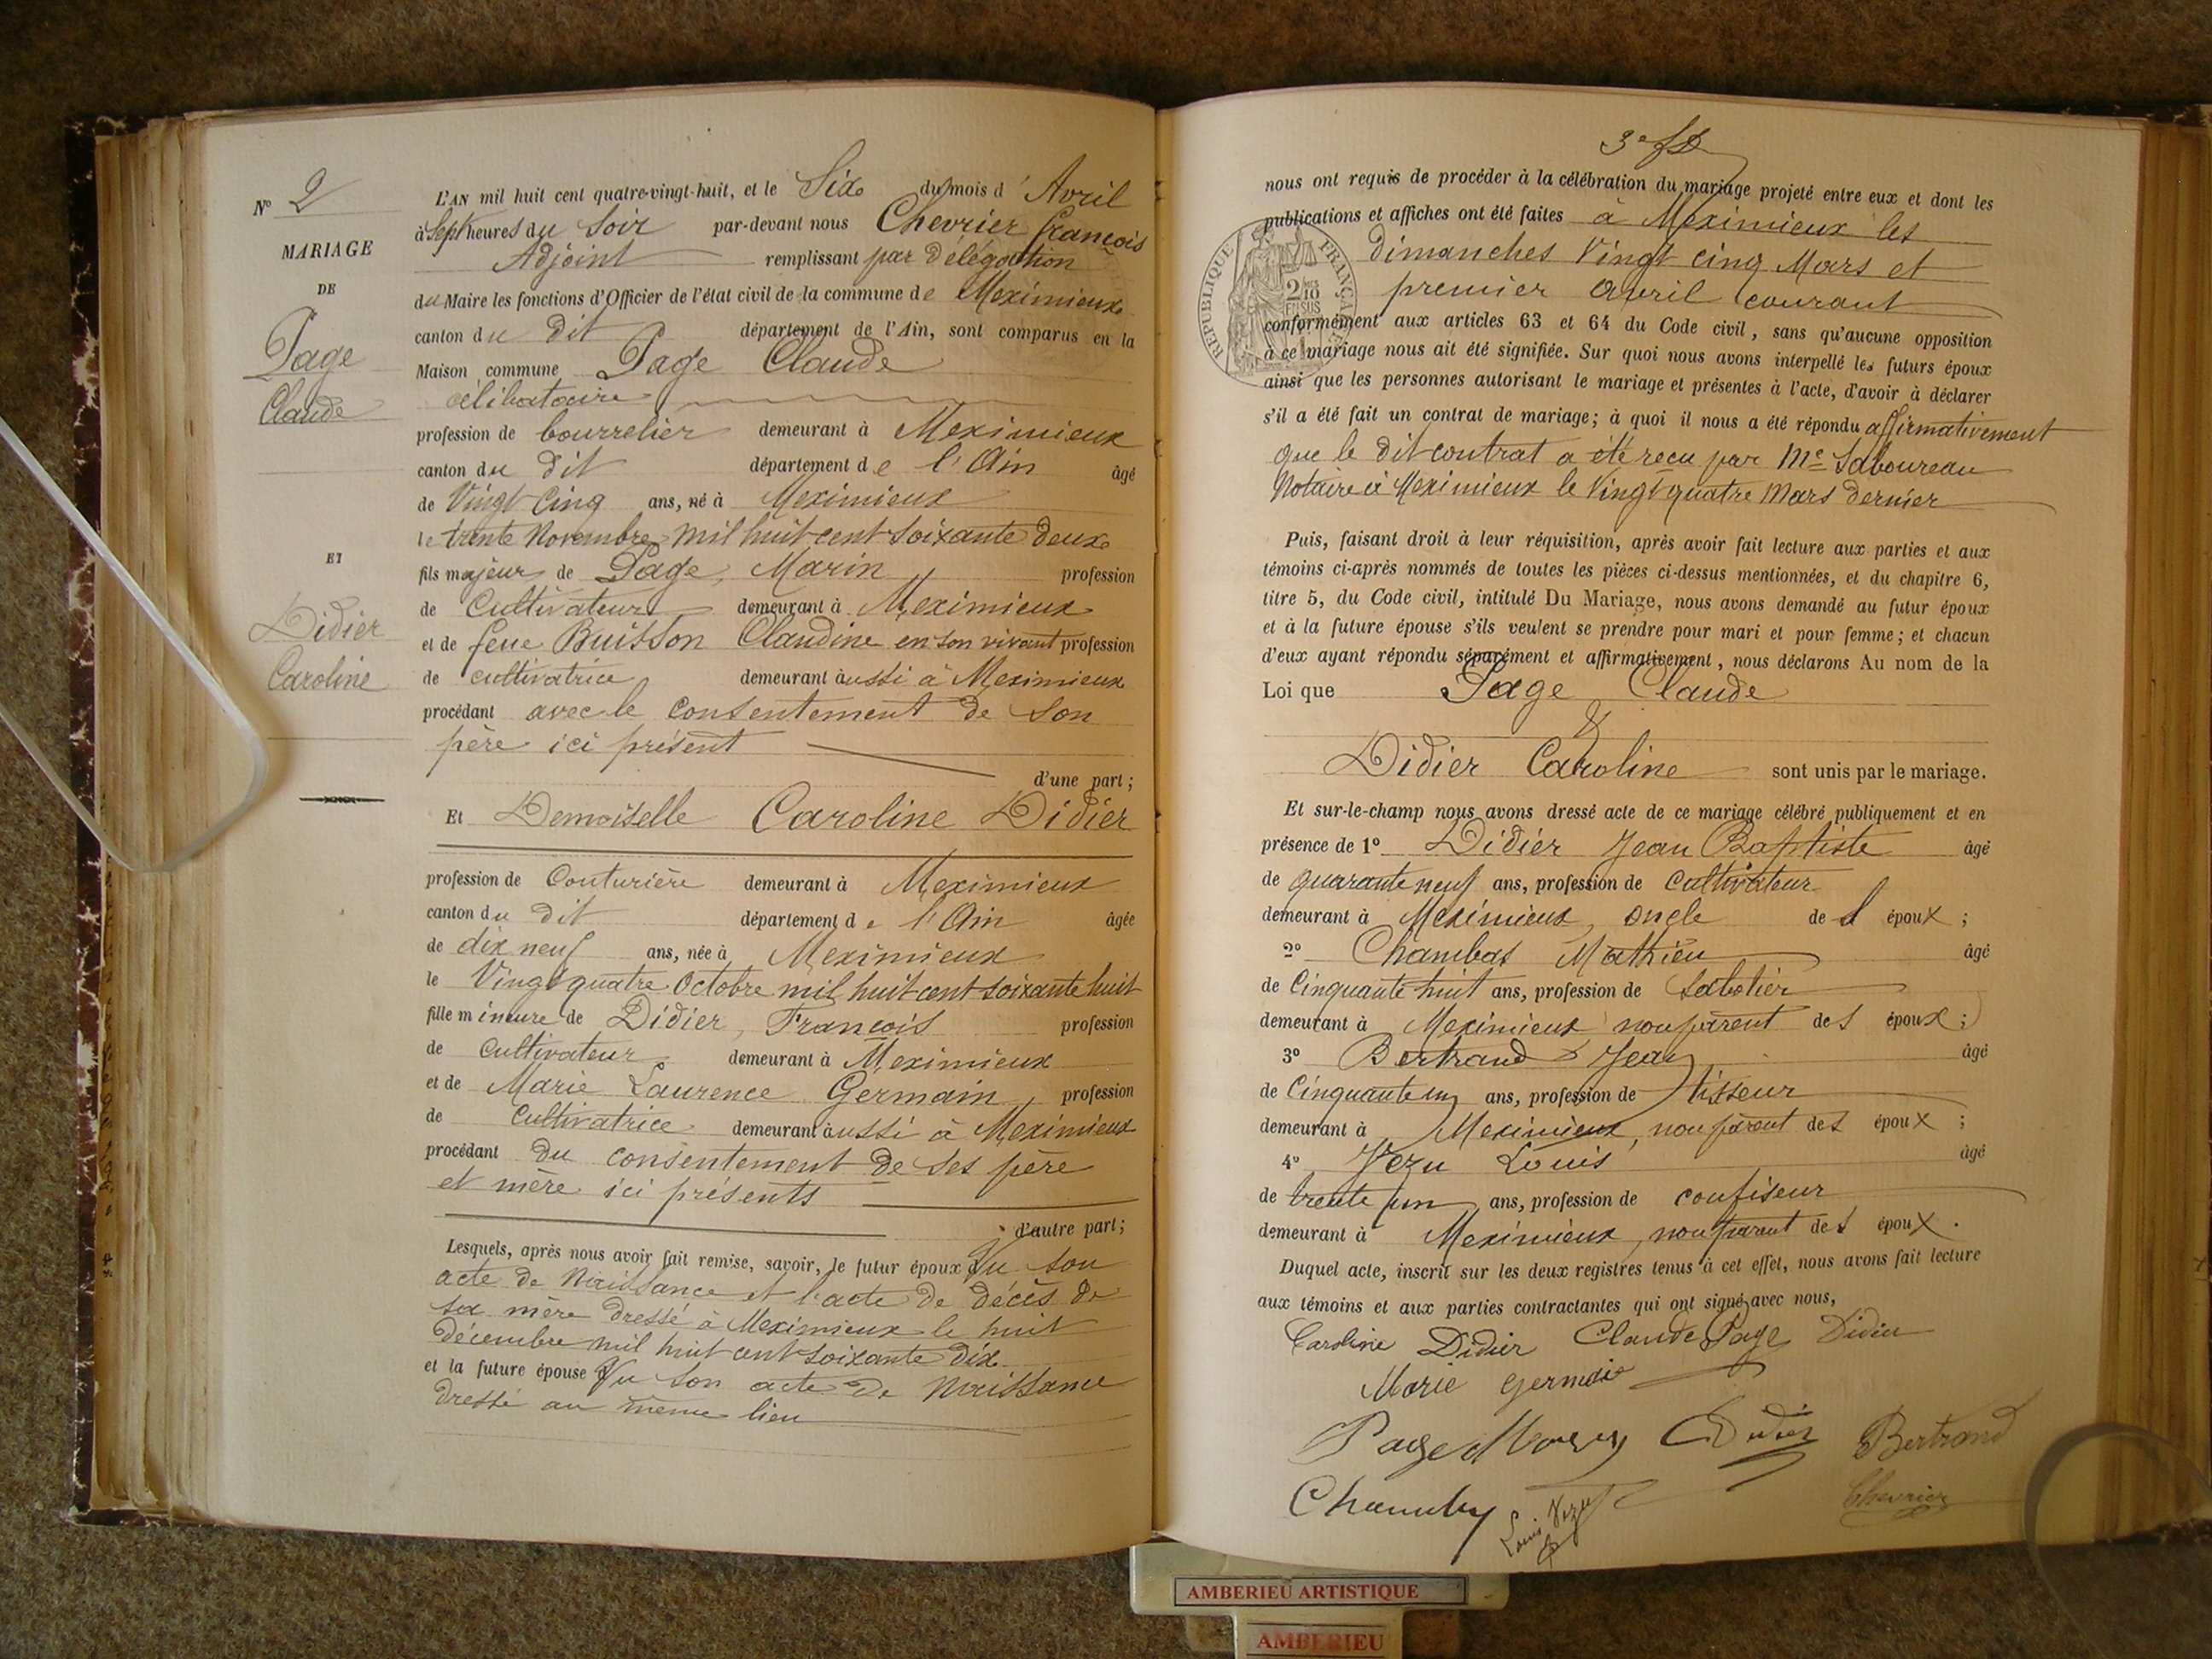 N° 2
MARIAGE
DE
Page
Claude
ET
Didier
Caroline
L'AN mil huit cent quatre-vingt-huit, et le Six du mois d'Avril
à Sept heures du Soir par-devant nous Chevrier François
Adjoint remplissant par délégation
du Maire les fonctions d'Officier de l'état civil de la commune de Meximieux
canton du dit département de l'Ain, sont comparus en la
Maison commune Page Claude
célibataire
profession de bourrelier demeurant à Meximieux
canton du dit département de l'Ain âgé
de Vingt Cinq ans, né à Meximieux
le trente Novembre mil huit cent soixante deux
fils majeur de Page, Marin, profession
de Cultivateur demeurant à Meximieux
et de feue Buisson Claudine en son vivant profession
de cultivatrice demeurant aussi à Meximieux
procédant avec le consentement de son
père ici présent
d'une part;
Et Demoiselle Caroline Didier
profession de Couturière demeurant à Meximieux
canton du dit département de l'Ain âgée
de dix neuf ans, née à Meximieux
le Vingt quatre Octobre mil huit cent soixante huit
fille mineure de Didier, François profession
de cultivateur demeurant à Meximieux
et de Marie Laurence Germain, profession
de Cultivatrice demeurant aussi à Meximieux
procédant du consentement de ses père
et mère ici présents
d'autre part;
Lesquels, après nous avoir fait remise, savoir, le futur époux Vu son
acte de Naissance et l'acte de décès de
sa mère dressé à Meximieux le huit
décembre mil huit cent soixante dix
et la future épouse Vu son acte de Naissance
dressé au même lieu
3e
nous ont requis de procéder à la célébration du mariage projeté entre eux et dont les
publications et affiches ont été faites à Meximieux les
dimanches Vingt cinq Mars et
premier avril courant
RÉPUBLIQUE FRANÇAISE
2/10 EN SUS
conformément aux articles 63 et 64 du Code civil, sans qu'aucune opposition
à ce mariage nous ait été signifiée. Sur quoi nous avons interpellé les futurs époux
ainsi que les personnes autorisant le mariage et présentes à l'acte, d'avoir à déclarer
s'il a été fait un contrat de mariage; à quoi il nous a été répondu affirmativement
que le dit contrat a été reçu par Me Saboureau
Notaire à Meximieux le Vingt quatre Mars dernier
Puis, faisant droit à leur réquisition, après avoir fait lecture aux parties et aux
témoins ci-après nommés de toutes les pièces ci-dessus mentionnées, et du chapitre 6,
titre 5, du Code civil, intitulé Du Mariage, nous avons demandé au futur époux
et à la future épouse s'ils veulent se prendre pour mari et pour femme; et chacun
d'eux ayant répondu séparément et affirmativement, nous déclarons Au nom de la
Loi que Page Claude
&
Didier Caroline sont unis par le mariage.
Et sur-le-champ nous avons dressé acte de ce mariage célébré publiquement et en
présence de 1° Didier Jean Baptiste âgé
de quarante neuf ans, profession de cultivateur
demeurant à Meximieux, oncle de l époux;
2° Chambas Mathieu âgé
de Cinquante huit ans, profession de Sabotier
demeurant à Meximieux non parent des époux;
3° Bertrand Jean âgé
de Cinquante un ans, profession de tisseur
demeurant à Meximieux, non parent des époux;
4° Vezu Louis âgé
de trente un ans, profession de confiseur
demeurant à Meximieux, non parent des époux.
Duquel acte, inscrit sur les deux registres tenus à cet effet, nous avons fait lecture
aux témoins et aux parties contractantes qui ont signé avec nous,
Caroline Didier Claude Page Didier
Marie Germain
Page Marin Didier Bertrand
Louis Vezu Chevrier
AMBERIEU ARTISTIQUE
AMBERIEU